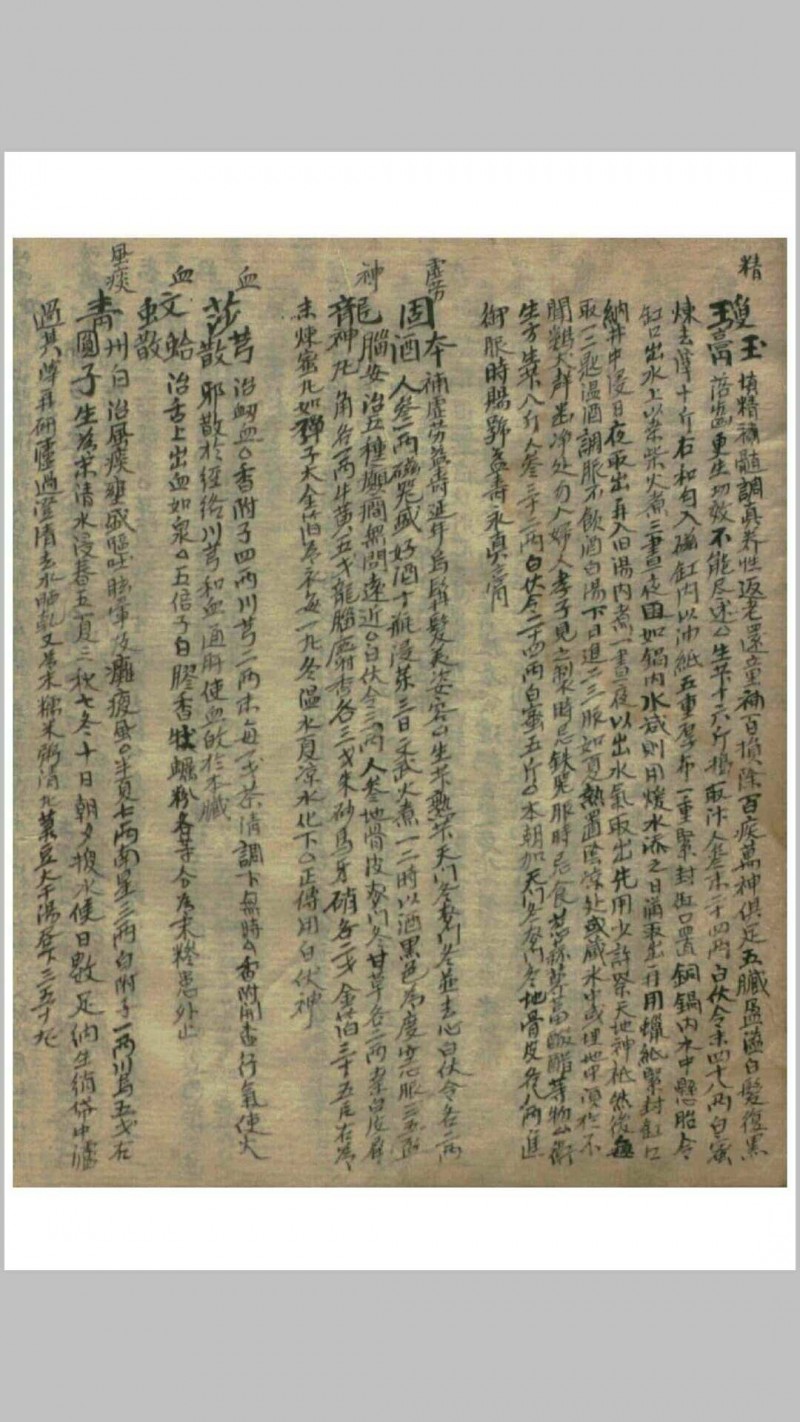 精
瓊玉膏 填精補髓調真养性返老還童補百損除百疾萬神俱足五臟盈溢白髮復黑
落齒更生功效不能尽述○生芐十六斤搗取汁人參末二十四兩白伏令末四十八兩白蜜
煉去滓十斤右和勻入磁缸內以油紙五重厚布一重緊封缸口置銅鍋內水中懸胎令
缸口出水上以桒柴火煮三晝夜因如鍋內水减則用煖水添之日滿取出再用蠟紙緊封缸口
納井中浸日夜取出再入旧湯內煮一晝夜以出水氣取出先用少許祭天地神祇然後每
取一二匙温酒調服不飲酒白湯下日進二三服如夏熱置陰凉处或藏水中或埋地中須於不
聞鷄犬声幽净处勿令婦人孝子見之製時忌鉄器服時忌食葱蒜
醋等物
生方生芐八斤人參十二兩白伏令二十四兩白蜜五斤○本朝加天門冬麥門冬地骨皮各八兩進
御服時賜號益壽永真膏
虛劳
固本酒 補虛劳益壽延年烏鬚髮美姿容○生芐熟芐天門冬麥門冬並去心白伏令各二兩
人參一兩磁器盛好酒十瓶浸藥三日文武火煮一二時以酒黑色為度空心服三五盃
神
龍腦安神丸 治五種癲癎無問遠近○白伏令三兩人參地骨皮麥門冬甘草各二兩桒白皮犀
角各一兩牛黃五戋龍腦麝香各三戋朱砂馬牙硝各二戋金箔三十五片右為
末煉蜜丸如彈子大金箔為衣每一丸冬温水夏凉水化下○正傳用白伏神
血
莎芎散 治衂血○香附子四兩川芎二兩末每二戋茶清調下無時○香附開
行氣使火
邪散於經絡川芎和血通肝使血歸於本臟
血
文蛤散 治舌上出血如泉○五倍子白膠香牡蠣粉各等分為末糝患処止
風痰
青州白圓子 治風痰壅盛嘔吐眩暈及癱瘓風○半夏七兩南星三兩白附子二兩川烏五戋右
生為末清水浸春五夏三秋七冬十日朝夕換水使日數足納生絹帒中濾
過其滓再研
過澄清去水晒乾又為末糯米粥清丸菉豆大千湯吞下三五十丸